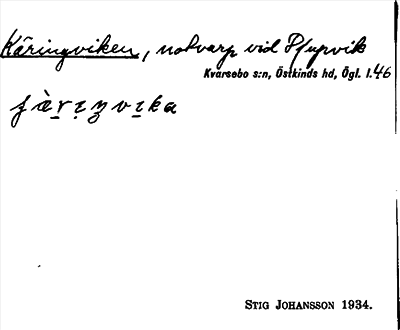 Käringviken, notvarp vid Djupvik
Kvarsebo s:n, Östkinds hd, Ögl. l.46
STIG JOHANSSON 1934.